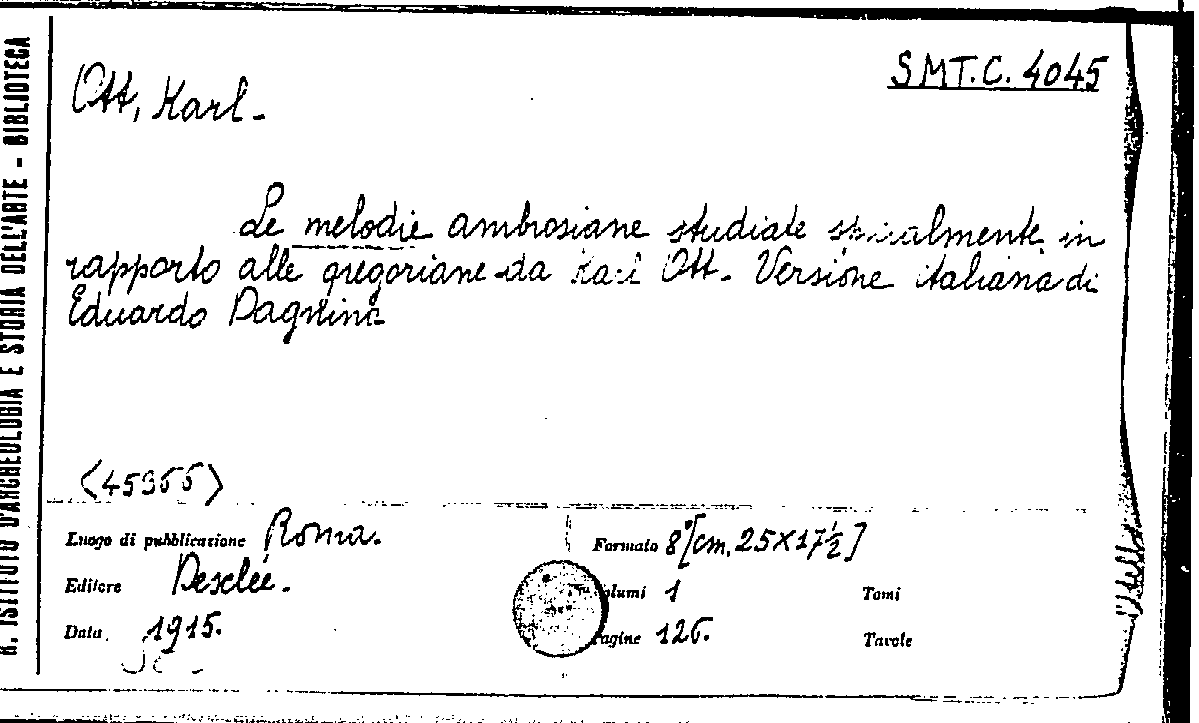 R. ISTITUTO D'ARCHEOLOGIA E STORIA DELL'ARTE - BIBLIOTECA
Ott, Karl.
SMT.C. 4045
Le melodie ambrosiane studiate specialmente in
rapporto alle gregoriane da Karl Ott. Versione italiana di
Eduardo Dagnino
Luogo di pubblicazione Roma.
Formato 8° [cm. 25X17½]
Editore Desclée.
Volumi 1
Tomi
Data 1915.
Pagine 126.
Tavole